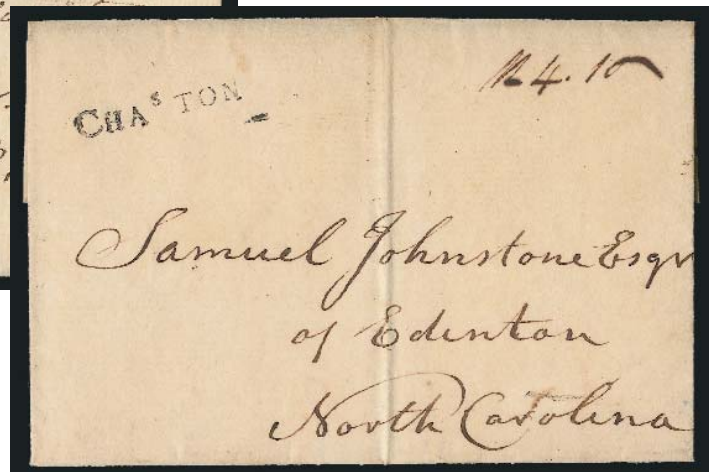 CHAˢ TON
4.10
Samuel Johnstone Esqr
of Edenton
North Carolina